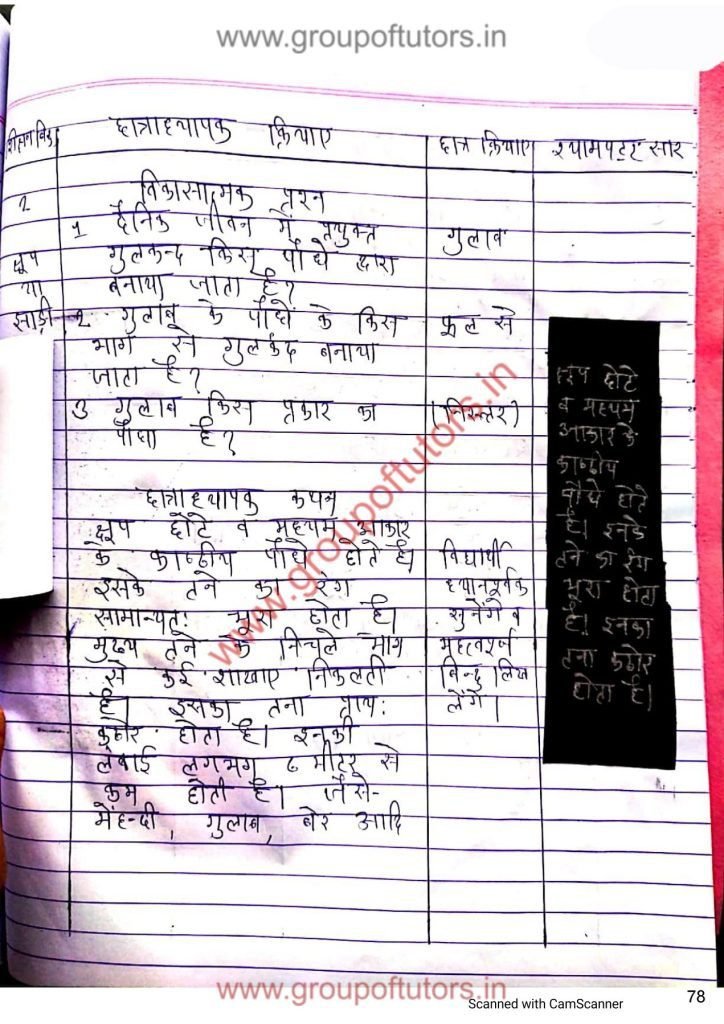 www.groupoftutors.in
शिक्षण बिन्दु छात्राध्यापक क्रियाए छात्र क्रियाए श्यामपट्ट सार
2 विकासात्मक प्रश्न
1 दैनिक जीवन में प्रयुक्त गुलाब
क्षूप गुलकन्द किस पौधे द्वारा
या बनाया जाता है?
साड़ी- 2. गुलाब के पौधे के किस फूल से
भाग से गुलकंद बनाया
जाता है?
3 गुलाब किस प्रकार का (निरुत्तर)
पौधा है?
छात्राध्यापक कथन
क्षूप छोटे व मध्यम आकार
के काष्ठीय पौधे होते है। विद्यार्थी
इसके तने का रंग ध्यानपूर्वक
सामान्यत: भूरा होता है। सुनेंगे व
मुख्य तने के निचले भाग महत्वपूर्ण
से कई शाखाए निकलती बिन्दु लिख
है। इसका तना प्राय: लेंगे।
कठोर होता है। इनकी
लंबाई लगभग ८ मीटर से
कम होती है। जैसे-
मेंहन्दी, गुलाब, बेर आदि
क्षूप छोटे
व मध्यम
आकार के
काष्ठीय
पौधे होते
है। इनके
तने का रंग
भूरा होता
है। इनका
तना कठोर
होता है।
www.groupoftutors.in
www.groupoftutors.in
Scanned with CamScanner
78